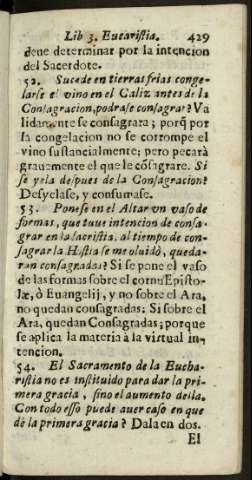 Lib 3. Eucaristia. 429
deue determinar por la intencion
del Sacerdote.
52. Sucede en tierras frias conge-
larse el vino en el Caliz antes de la
Consagracion, podrase consagrar? Va
lidamente se consagrara; porq̃ por
la congelacion no se corrompe el
vino sustancialmente; pero pecarà
grauemente el que le cõsagrare. Si
se yela despues de la Consagracion?
Desyelase, y consumase.
53. Ponese en el Altar vn vaso de
formas, que tuue intencion de consa-
grar en la sacristia, al tiempo de con-
sagrar la Hostia se me oluidò, queda-
ran consagradas? Si se pone el vaso
de las formas sobre el cornu Episto-
læ, ò Euangelij, y no sobre el Ara,
no quedan consagradas; Si sobre el
Ara, quedan Consagradas; porque
se aplica la materia à la virtual in-
tencion.
54. El Sacramento de la Eucha-
ristia no es instituido para dar la pri-
mera gracia, sino el aumento della.
Con todo esso puede auer caso en que
dè la primera gracia? Dala en dos.
El